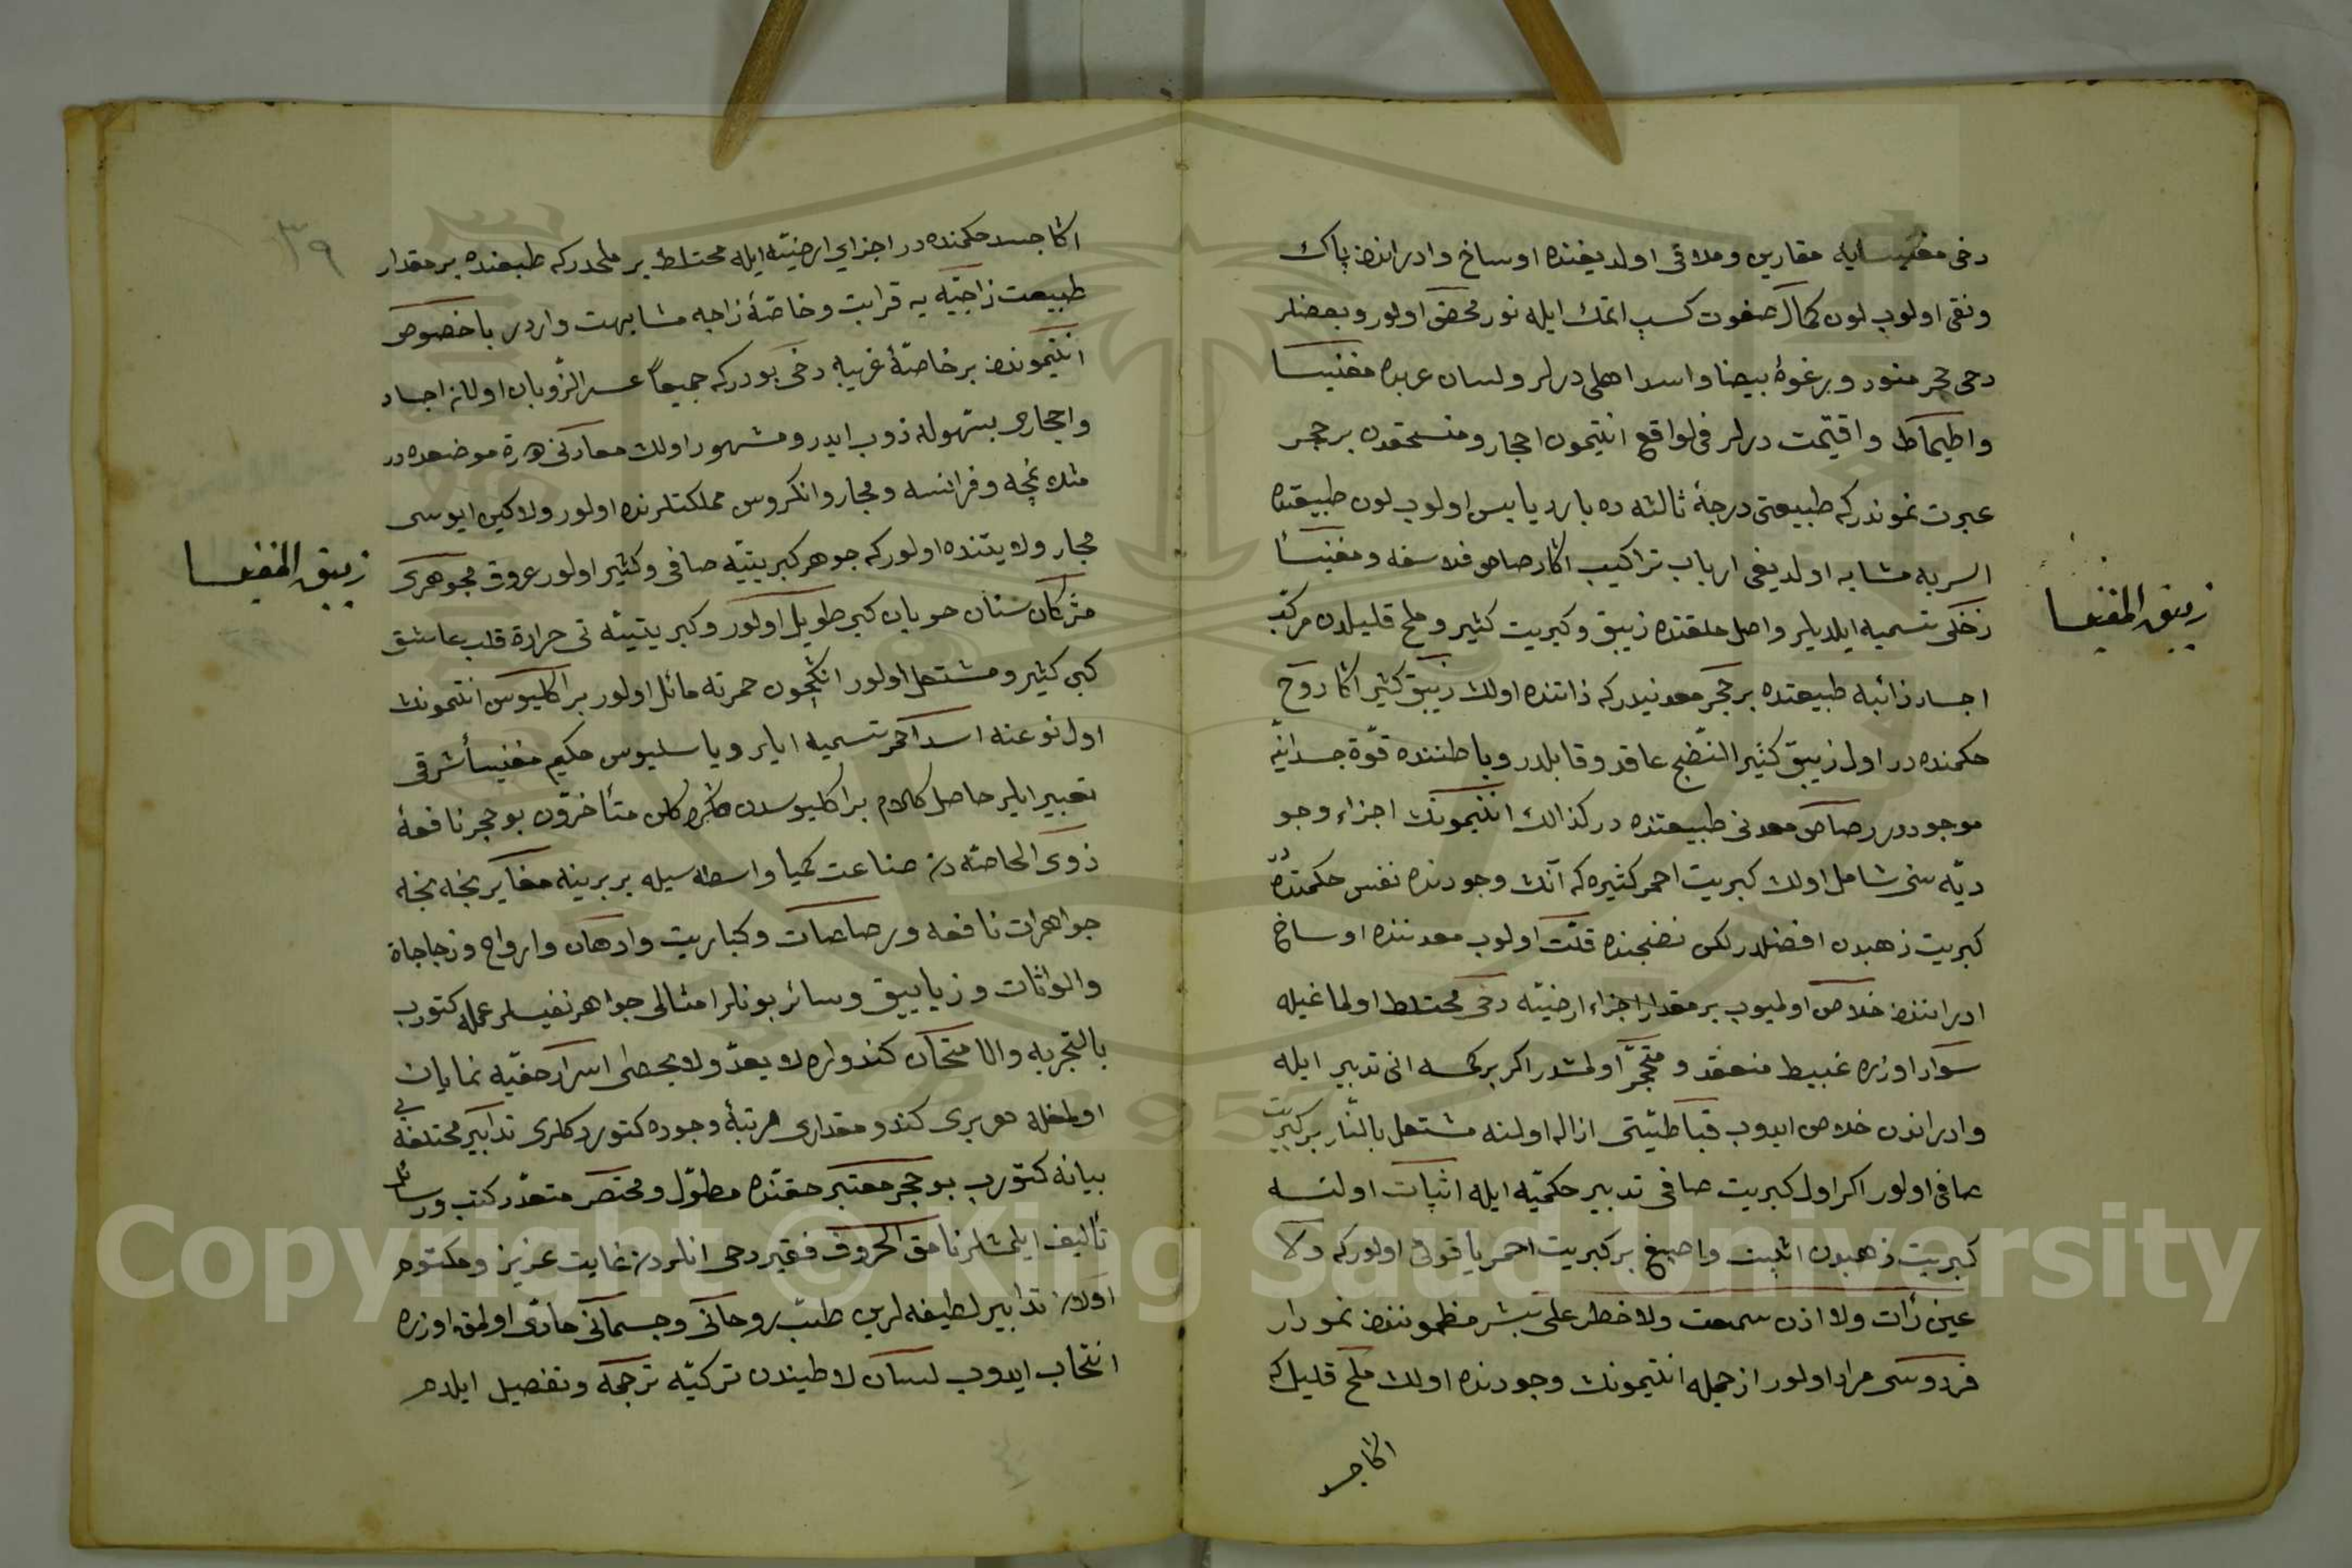 دخی مغنیسایه مقارن وملاقی اولدیغنده اوساخ وادراندن پاك
ونقی اولوب لون کمال صفوت کسب اتمك ایله نور محض اولور وبعضلر
دخی حجر منور وبرغوۀ بیضا واسد اهلی دیرلر ولسان عربده مغنیسا
واطیماط واقتیمت دیرلر فی الواقع انتیمون احجار ومنسحقدن بر حجر
عبرت نموندرکه طبیعتی درجۀ ثالثه ده بارد یابس اولوب لون طبیعتده
اسربه مشابه اولدیغی ارباب تراکیب اکا رصاص فلاسفه ومغنیسأ
زحلی تسمیه ایلدیلر واصل خلقتده زیبق وکبریت کثیر وملح قلیلدن مرکب
اجساد ذائبه طبیعتده بر حجر معدنیدرکه ذاتنده اولان زیبق کثیر اکا روح
حکمنده در اول زیبق کثیر النضج عاقد وقابلدر وباطننده قوة جسدانیه
موجوددر رصاص معدنی طبیعتنده در کذالك انتیمونك اجزاء وجو
دیه سنی شامل اولان کبریت احمر کثیره که آنك وجودنده نفس حکمنده در
کبریت ذهبدن افضلدر لکن نضجنده قلت اولوب معدننده اوساخ
ادراننندن خلاص اولمیوب بر مقدار اجزاء ارضیه دخی محتلط اولماغیله
سواد اوزره غبیط منعقد ومتحجر اولمشدر اکر برکسه انی تدبیر ایله
وادراندن خلاص ایدوب قباطیتی ازاله اولنه مشتعل بالنار بر کبریت
صافی اولور اکر اول کبریت صافی تدبیر حکمیه ایله اثبات اولنسه
کبریت ذهبدن اثبت واصبغ بر کبریت احمر یاقوتی اولورکه ولا
عین رأت ولا اذن سمعت ولا خطر علی بشر مظموننندن نمودار
فردوسی مراد اولور از جمله انتیمونك وجودنده اولان ملح قلیل که
اکا جسد
زیبق المغنیسا
٣٩
اکا جسد حکمنده در اجزای ارضیه ایله محتلط بر ملحدرکه طبعنده بر مقدار
طبیعت زاجیه یه قرابت وخاصۀ زاجه مشابهت واردر باخصوص
انتیموندن بر خاصۀ غریبه دخی بودرکه جمیعاً عسر الذوبان اولان اجساد
واحجاری بسهوله ذوب ایدر ومشهور اولان معادنی هر موضعده در
مثلا نمچه وفرانسه ومجار وانکروس مملکتلرنده اولور ولاکین ایوسی
مجار ولایتنده اولورکه جوهر کبریتیه صافی وکثیر اولور عروق مجوهری
مژکان ستان خوبان کبی طویل اولور وکبریتیته نی حرارة قلب عاشق
کبی کثیر ومشتعل اولور انکیچون حمرته مائل اولور براکلیوس انتیمونك
اول نوعنه اسد احمر تسمیه ایلر وباسلیوس حکیم مغنیسأ شرقی
تعبیر ایلر حاصل کلام براکلیوسدن صکره کلن متأخرون بو حجر نافعۀ
ذوی الخاصه دن صناعت کمیا واسطه سیله بربرینه مغایر نجه نجه
جواهرات نافعه ورصاصات وکباریت وادهان وارواح وزجاجاة
والوانات وزیابیق وسائر بونلر امثالی جواهر نفیسلر عمله کتورب
بالتجربه والامتحان کندولره لا یعد ولا یحصی اسرار خفیه نمایان
اولمغله هر بری کندو مقداری مرتبۀ وجوده کتوردکلری تدابیر مختلفه یی
بیانه کتورب بو حجر معتبر حقنده مطول ومختصر متعدد کتب ورسائل
تألیف ایلمشلر نامق الحروف فقیر دخی انلردن غایت عزیز ومکتوم
اولان تدابیر لطیفه لرین طب روحانی وجسمانی حاوی اولمق اوزره
انتخاب ایدوب لسان لاطیندن ترکیه ترجمه وتفصیل ایلدم
زیبق المغنیسا